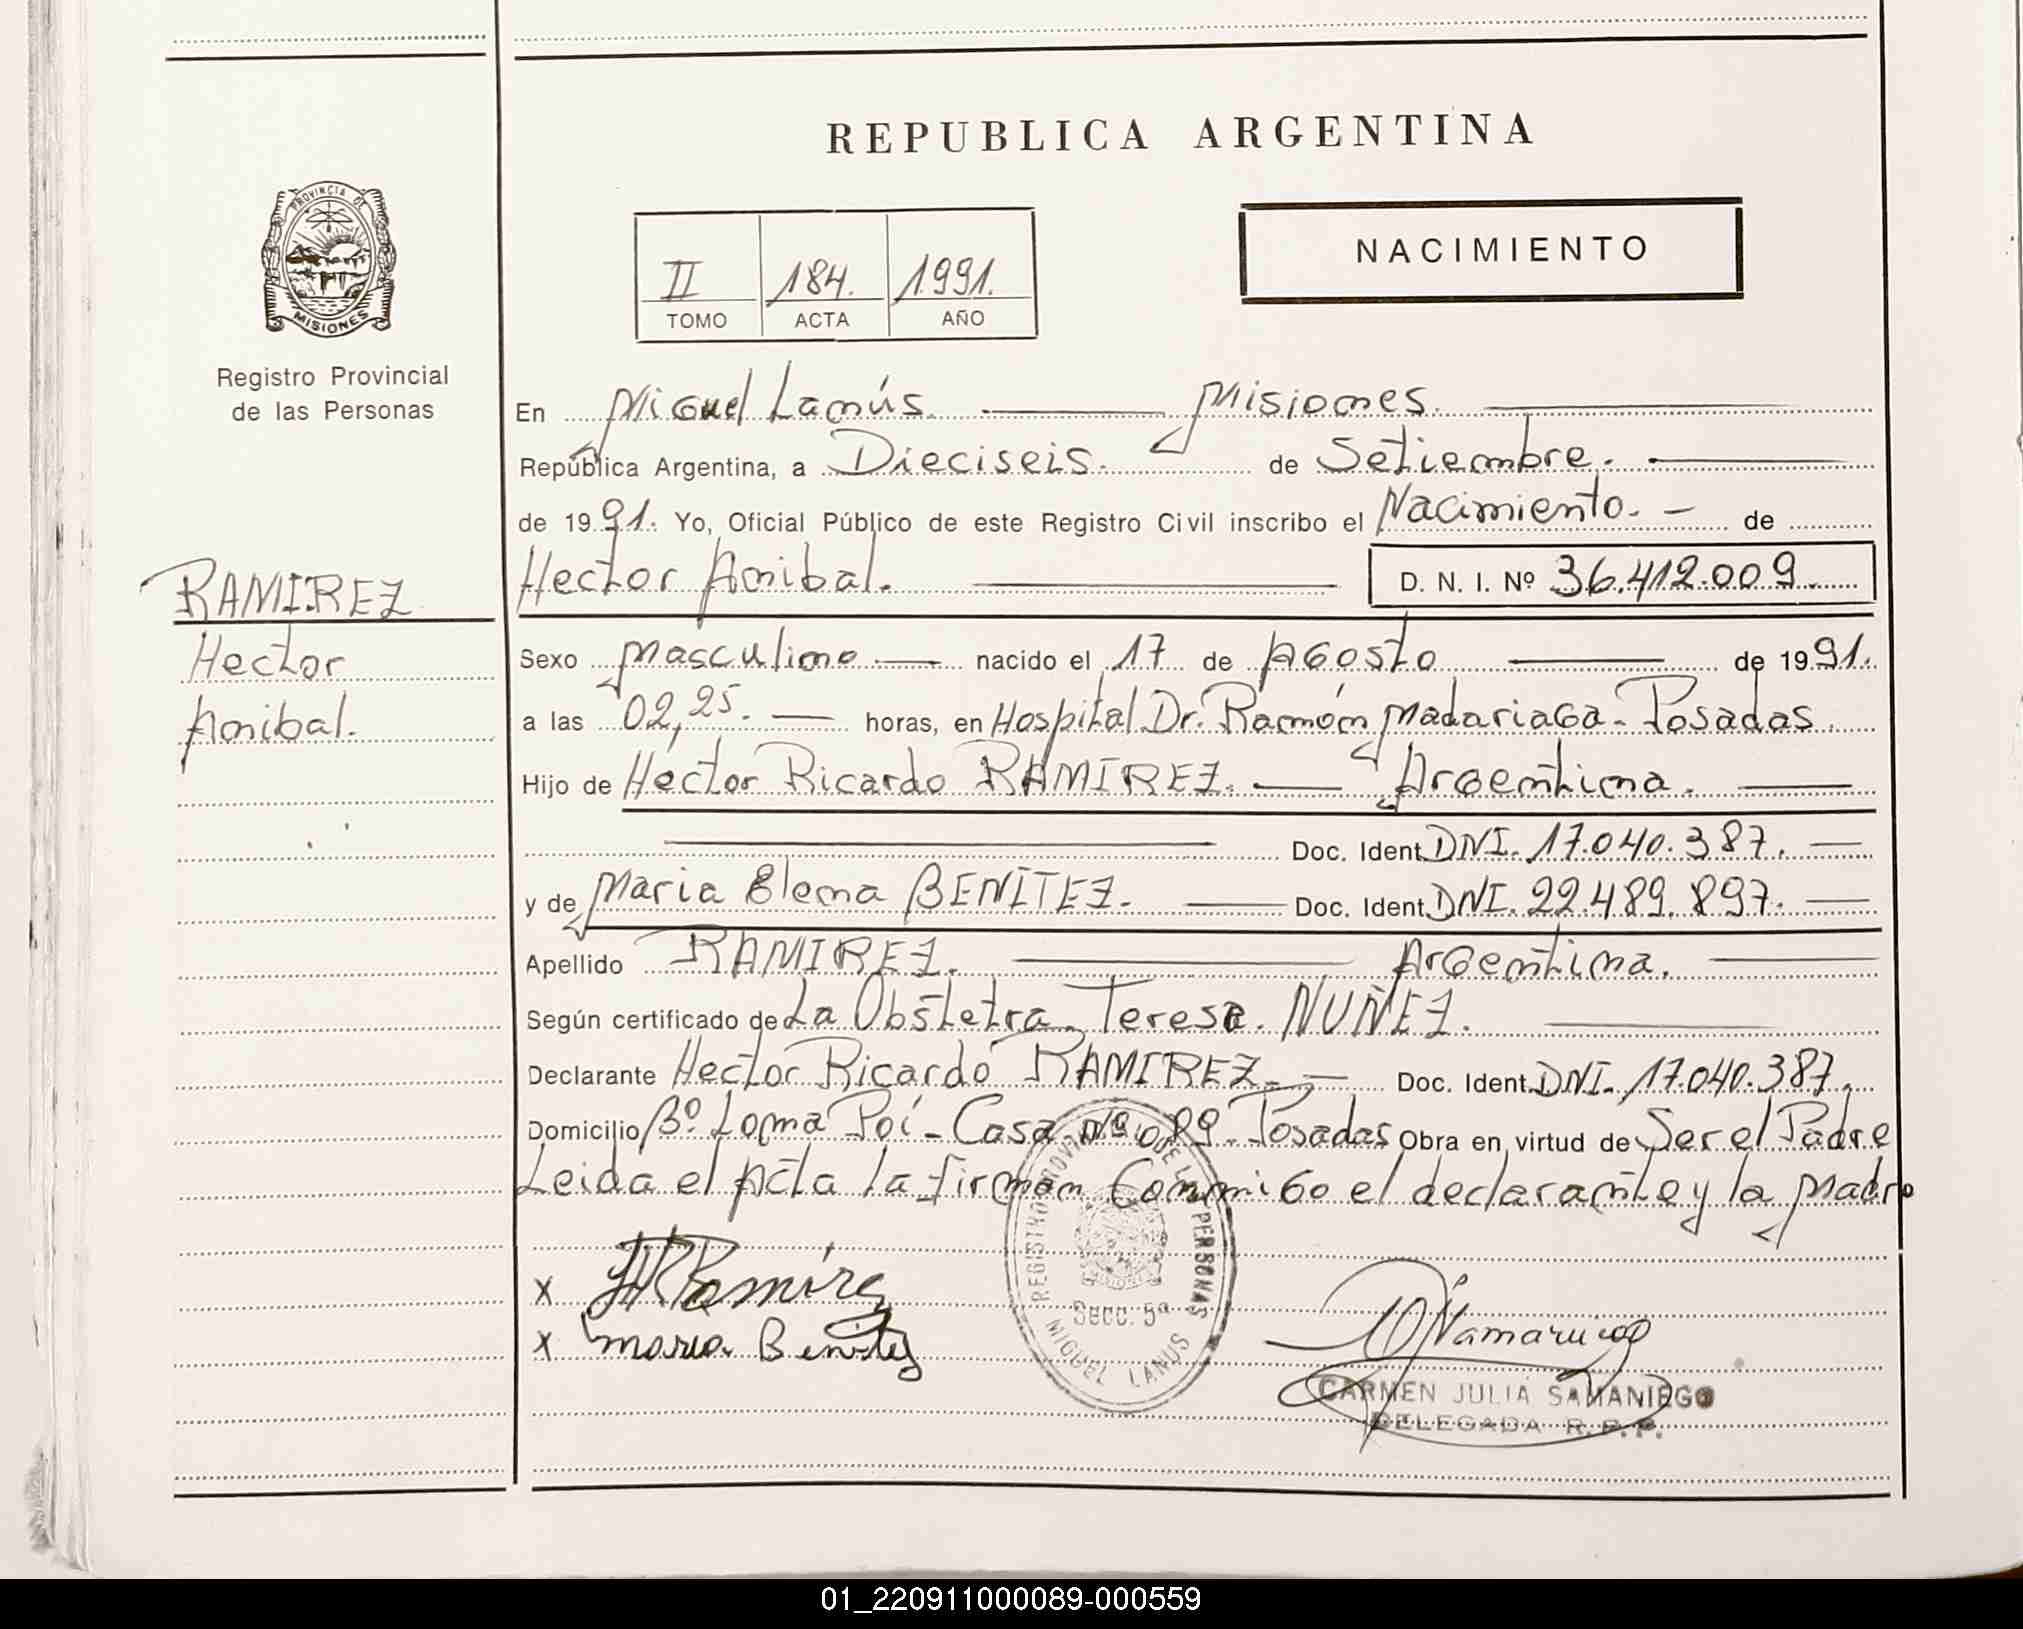 REPUBLICA ARGENTINA
PROVINCIA DE
MISIONES
Registro Provincial
de las Personas
NACIMIENTO
II 184. 1991.
TOMO ACTA AÑO
En Miguel Lanús. Misiones.
República Argentina, a Dieciseis. de Setiembre.
de 1991. Yo, Oficial Público de este Registro Civil inscribo el Nacimiento. - de
Hector Anibal. D. N. I. Nº 36.412.009
RAMIREZ
Hector
Anibal.
Sexo Masculino nacido el 17 de Agosto de 1991.
a las 02,25. horas, en Hospital Dr. Ramón Madariaga - Posadas.
Hijo de Hector Ricardo RAMIREZ. Argentina.
Doc. Ident. DNI. 17.040.387.
y de Maria Elena BENITEZ. Doc. Ident. DNI. 22.489.897.
Apellido RAMIREZ. Argentina.
Según certificado de La Obstetra. Teresa. NUÑEZ.
Declarante Hector Ricardo RAMIREZ. Doc. Ident. DNI. 17.040.387.
Domicilio Bº. Loma Poí - Casa nº 089 - Posadas Obra en virtud de Ser el Padre
Leida el Acta la firman Conmigo el declarante y la Madre
x HRRamírez
x Maria Benitez
REGISTRO PROVINCIAL DE LAS PERSONAS
Secc. 5ª
MIGUEL LANUS
CARMEN JULIA SAMANIEGO
DELEGADA R. P. P.
01_220911000089-000559